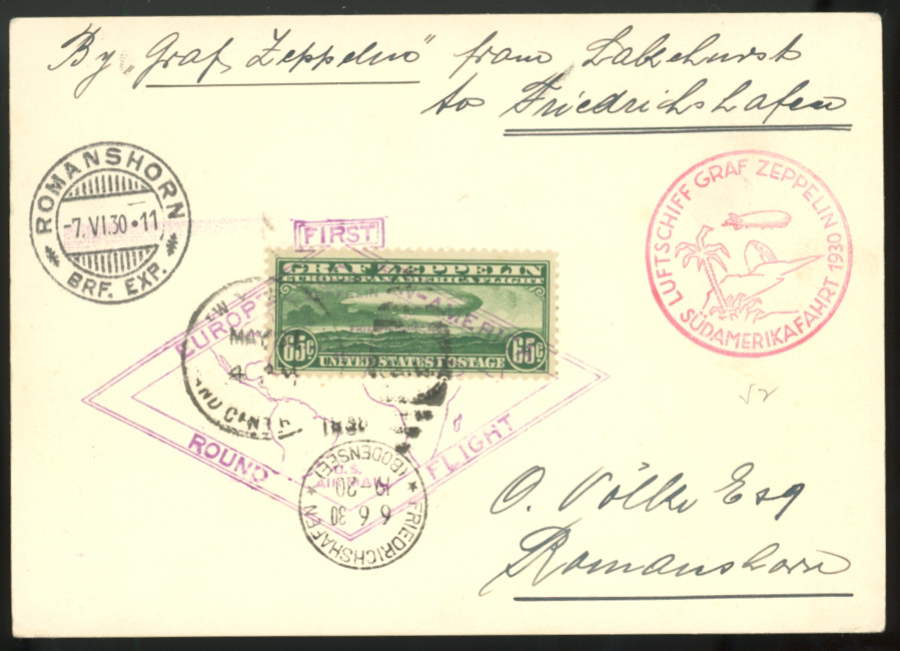 By „Graf Zeppelin" from Lakehurst
to Friedrichshafen
ROMANSHORN
-7.VI.30•11
BRF. EXP.
LUFTSCHIFF GRAF ZEPPELIN
SÜDAMERIKAFAHRT 1930
FIRST
EUROPE PAN-AMERICA
ROUND FLIGHT
U.S.
AIR MAIL
GRAF ZEPPELIN
EUROPE PAN-AMERICA FLIGHT
65c 65c
UNITED STATES POSTAGE
MAY
4
FRIEDRICHSHAFEN
(BODENSEE)
6 6 30
19-20
52
O. Völke Esq
Romanshorn